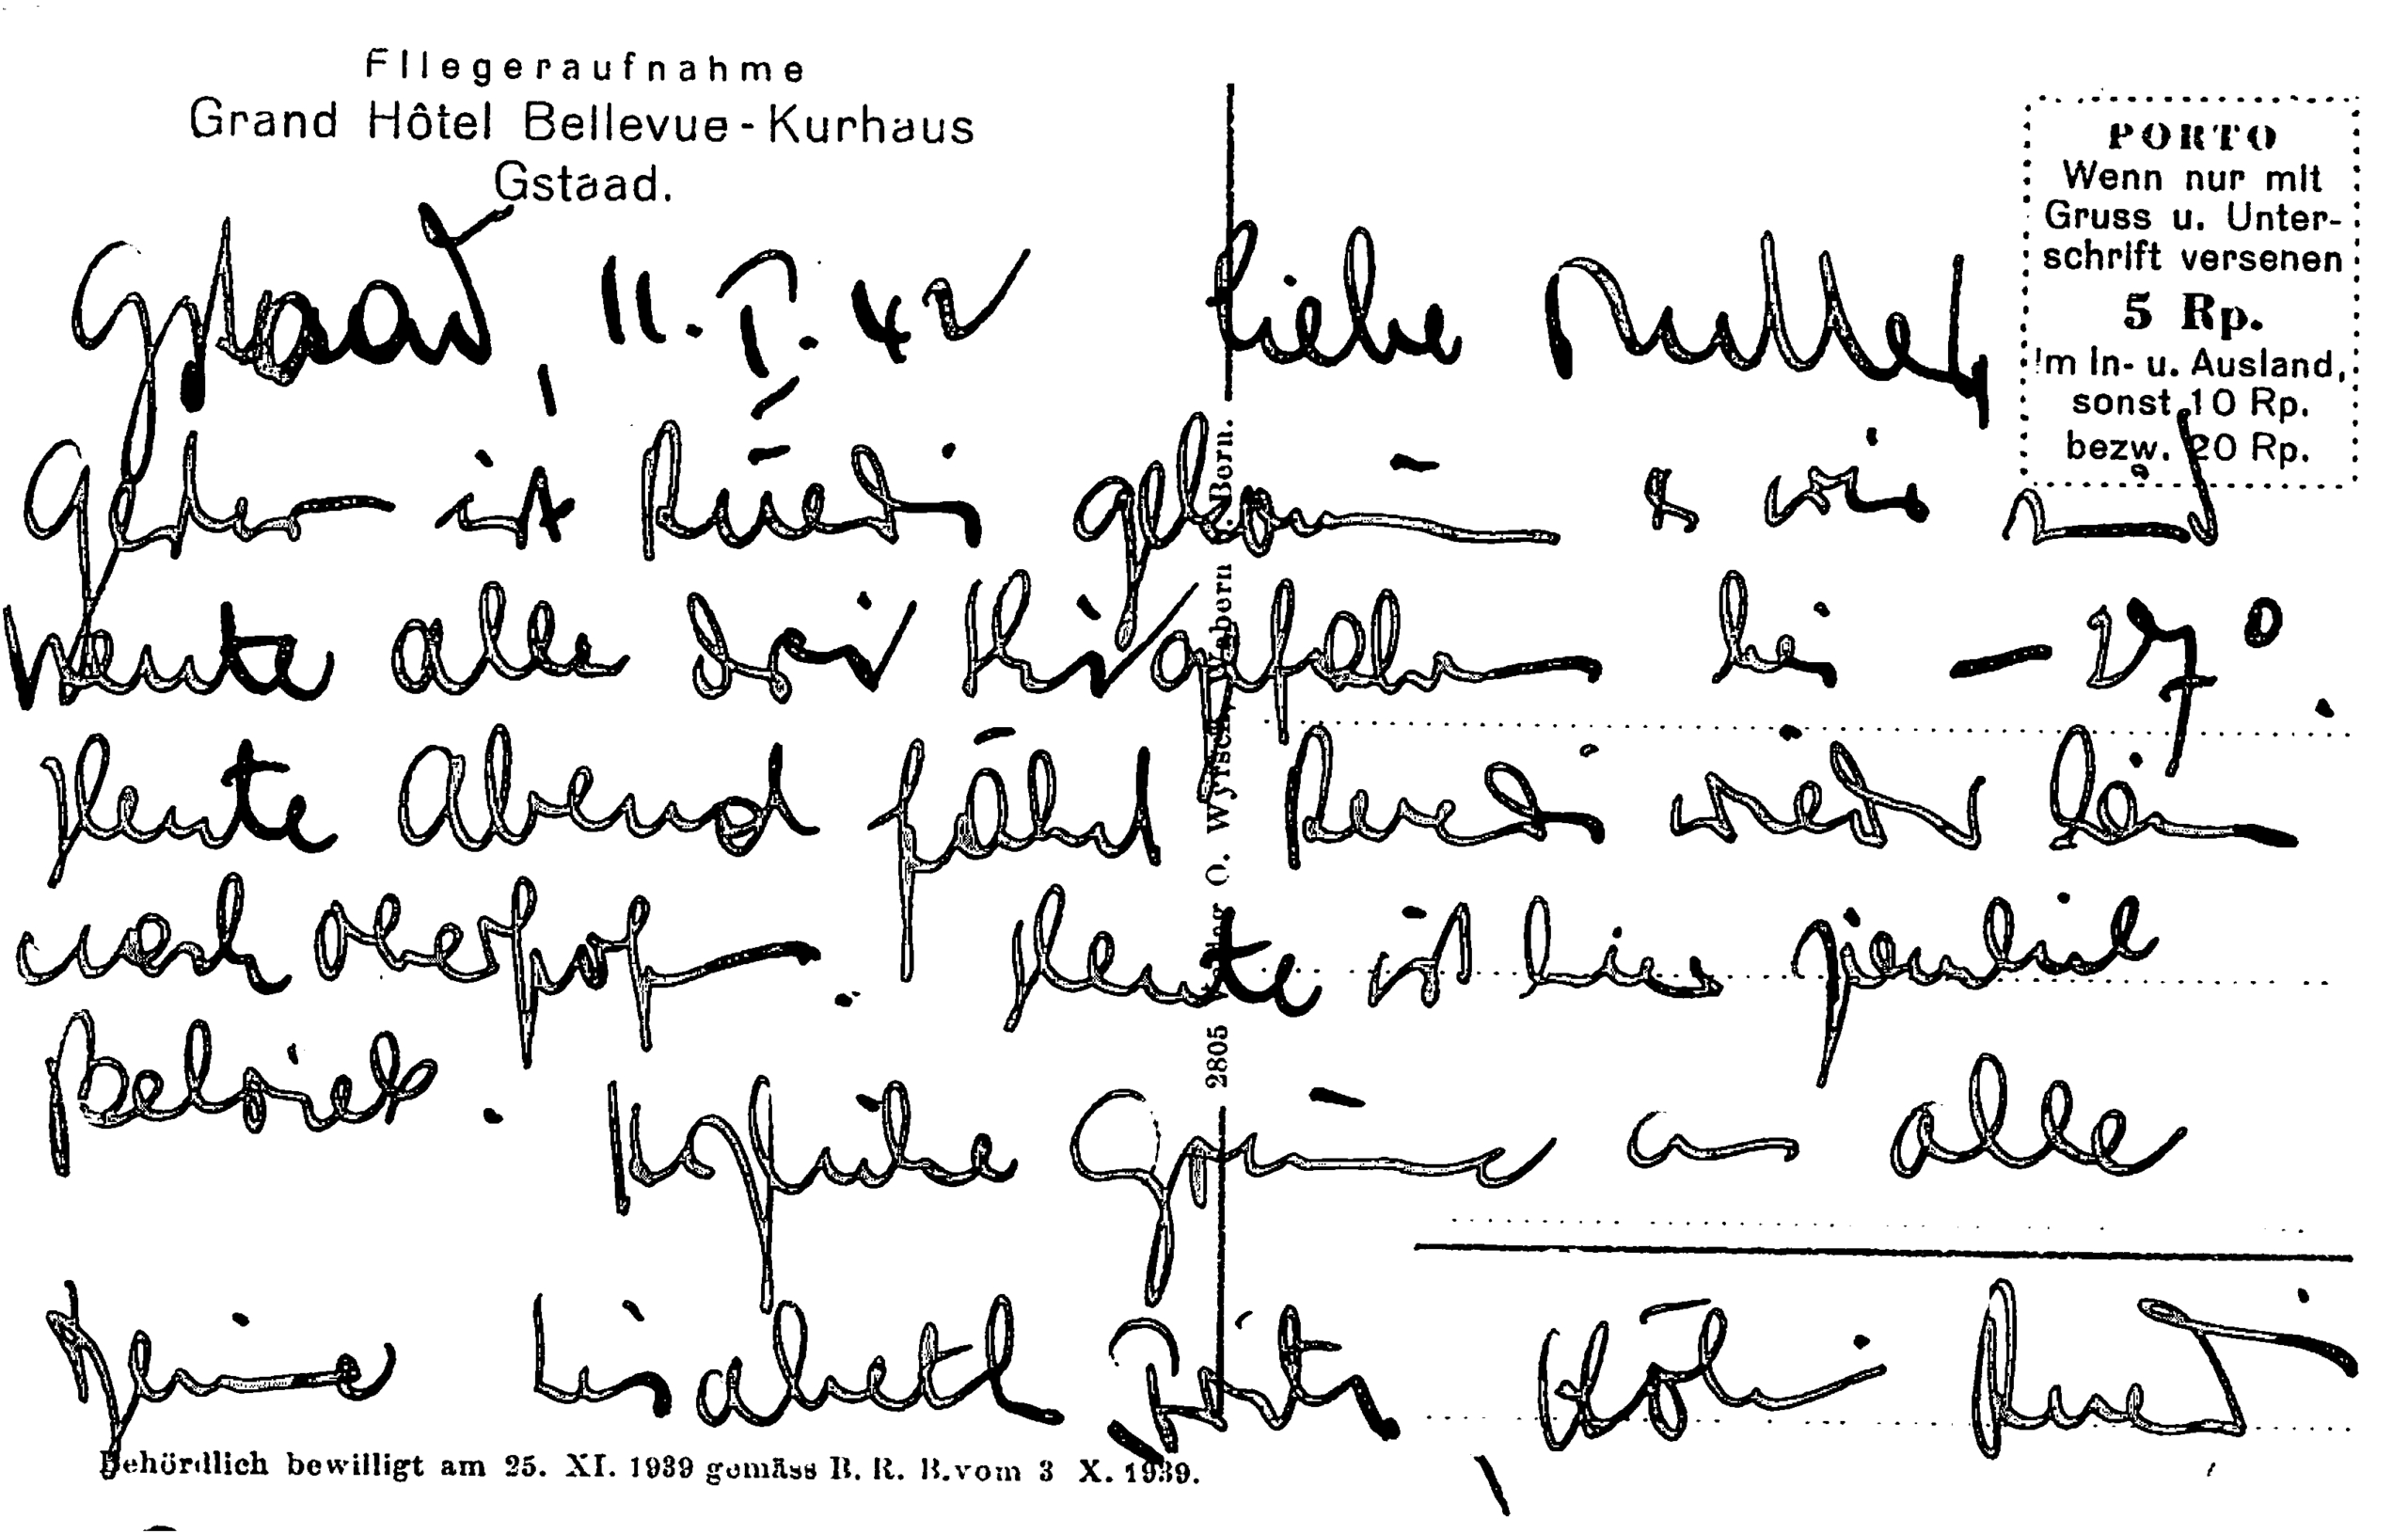 Fliegeraufnahme
Grand Hôtel Bellevue-Kurhaus
Gstaad.
PORTO
Wenn nur mit
Gruss u. Unter-
schrift versenen
5 Rp.
Im In- u. Ausland,
sonst 10 Rp.
bezw. 20 Rp.
Gstaad, 11. I. 42 Liebe
Gestern ist Rüedi & wir sind
Heute alle bei - 27°.
Heute Abend fährt Ruedi wieder
nach . Heute ist hier ziemlich
Betrieb. Herzliche Grüsse an alle
Heini Lisabeth Fritz, Ruedi
2805 Verlag O. Wyrsch, Wabern b. Bern.
Behördlich bewilligt am 25. XI. 1939 gemäss B. R. B. vom 3 X. 1939.